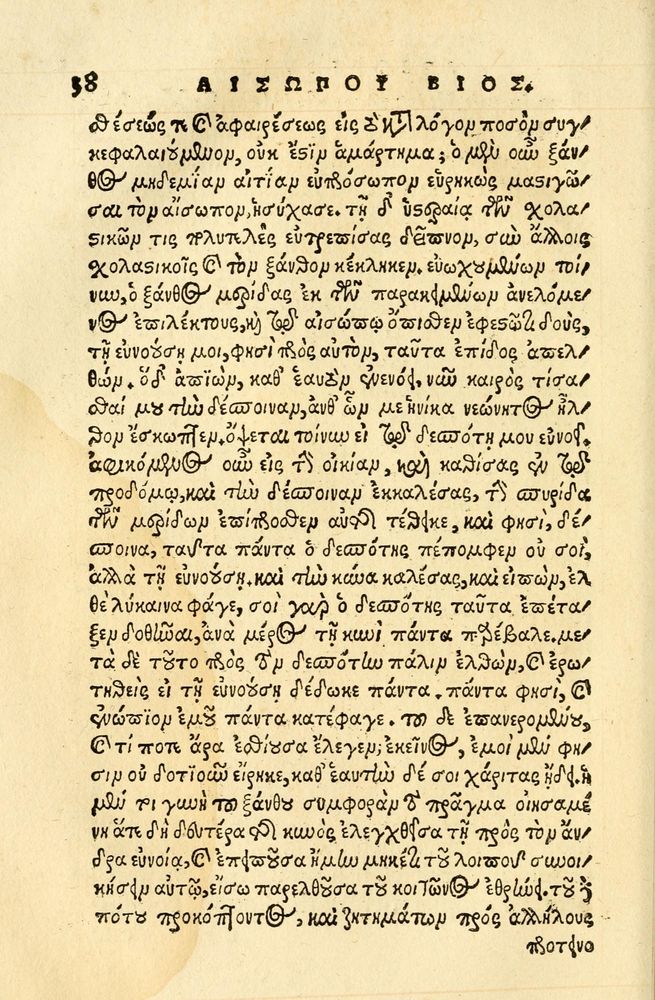 58 ΑΙΣΩΠΟΥ ΒΙΟΣ.
θέσεώς τε καὶ ἀφαιρέσεως εἰς λόγον ποσὸν συγ-
κεφαλαιούμενον, οὐκ ἔστιν ἁμάρτημα; ὁ μὲν οὖν ξάν-
θος μηδεμίαν αἰτίαν εὐπρόσωπον εὑρηκὼς μαστιγῶ-
σαι τὸν αἴσωπον, ἡσύχασε. τῇ δ' ὑστεραίᾳ τῶν σχολα-
στικῶν τις πολυτελὲς εὐτρεπίσας δεῖπνον, σὺν ἄλλοις
σχολαστικοῖς καὶ τὸν ξάνθον κέκληκεν. εὐωχουμένων τοί-
νυν, ὁ ξάνθος μερίδας ἐκ τῶν παρακειμένων ἀνελόμε-
νος ἐπιλέκτους, καὶ τῷ αἰσώπῳ ὄπισθεν ἐφεστῶτι δοὺς,
τῇ εὐνούσῃ μοι, φησὶ πρὸς αὐτὸν, ταῦτα ἐπίδος ἀπελ-
θών. ὁ δ' ἀπιὼν, καθ' ἑαυτὸν ἐνενόει. νῦν καιρὸς τίσα-
σθαί μου τὴν δέσποιναν, ἀνθ' ὧν με ἡνίκα νεώνητος ἦλ-
θον ἔσκωπτεν. ὄψεται τοίνυν εἰ τῷ δεσπότῃ μου εὐνοεῖ.
ἀφικόμενος οὖν εἰς τὴν οἰκίαν, καὶ καθίσας ἐν τῷ
προδόμῳ, καὶ τὴν δέσποιναν ἐκκαλέσας, τὴν σπυρίδα
τῶν μερίδων ἐπίπροσθεν αὐτῆς τέθεικε, καὶ φησὶ, δέ-
σποινα, ταῦτα πάντα ὁ δεσπότης πέπομφεν οὐ σοὶ,
ἀλλὰ τῇ εὐνούσῃ. καὶ τὴν κύνα καλέσας, καὶ εἰπὼν, ἐλ-
θὲ λύκαινα φάγε, σοὶ γὰρ ὁ δεσπότης ταῦτα ἐπέτα-
ξεν δοθῆναι, ἀνὰ μέρος τῇ κυνὶ πάντα προέβαλε. με-
τὰ δὲ τοῦτο πρὸς τὸν δεσπότην πάλιν ἐλθὼν, καὶ ἐρω-
τηθεὶς εἰ τῇ εὐνούσῃ δέδωκε πάντα. πάντα φησὶ, καὶ
ἐνώπιον ἐμοῦ πάντα κατέφαγε. τοῦ δὲ ἐπανερομένου,
καὶ τί ποτε ἄρα ἐσθίουσα ἔλεγεν; ἐκεῖνος, ἐμοὶ μὲν φη-
σιν οὐδοτιοῦν εἴρηκε, καθ' ἑαυτὴν δέ σοι χάριτας ᾔδει. ἡ
μέντοι γυνὴ τοῦ ξάνθου συμφορὰν τὸ πρᾶγμα οἰησαμέ
νη ἅτε δὴ δευτέρα τῆς κυνὸς ἐλεγχθεῖσα τῇ πρὸς τὸν ἄν-
δρα εὐνοίᾳ, καὶ ἐπειποῦσα ἦ μὴν μηκέτι τοῦ λοιποῦ συνοι-
κήσειν αὐτῷ, εἴσω παρελθοῦσα τοῦ κοιτῶνος ἐθρήνει. τοῦ δὲ
πότου προκόπτοντος, καὶ ζητημάτων πρὸς ἀλλήλους
προτεινο